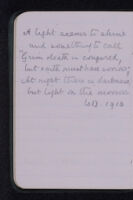 A light seems to shine
and something to call
"Grim death is conquered,
but earth must have sorrow,
At night there is darkness,
but light on the morrow
1918